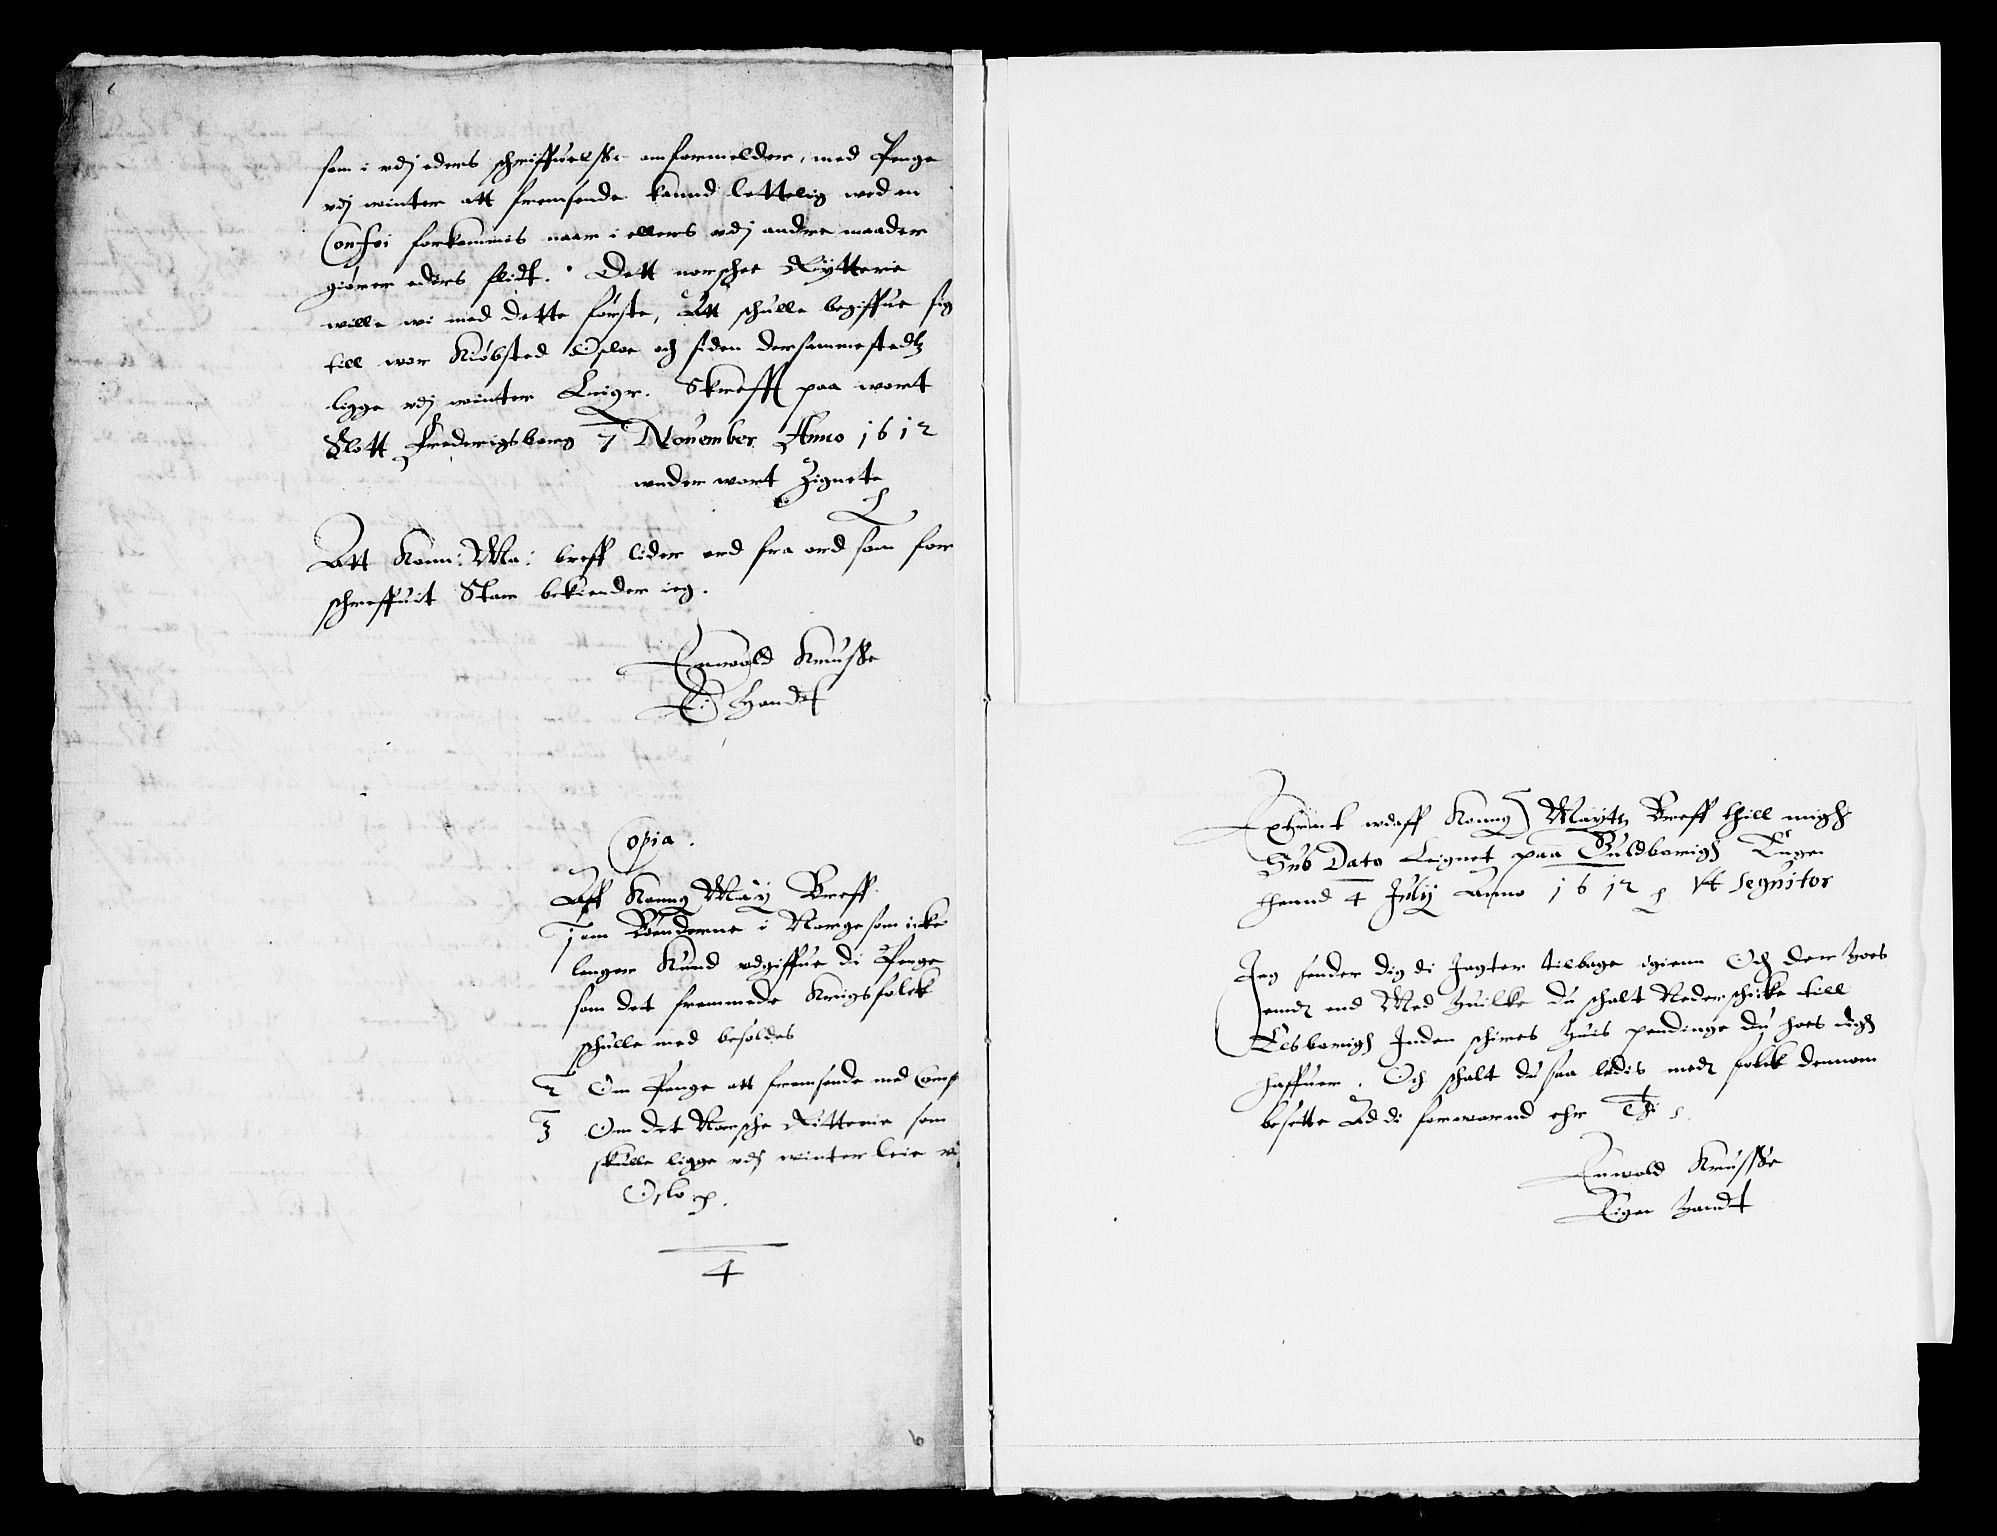 som i vdj eders schriffuelsse omformelder, med Penge
vdj winter att fremsende kannd lettelig wed en
Confoi forkommis naar i ellers vdj andre maader
giører eders flidt. Dett norsche Rÿtterie
wille wi med dette første, Att schulle begiffue sig
till wor Kiøbsted Osloe och siden dersammestedtz
ligge vdj winter Leigr. Skrefft paa wort
Slott Frederigsborg 7 November Anno 1612
wnder wort Zignete
Att Konn: Ma: breff lider ord fra ord som for
schreffuit Staar bekiender ieg.
Enwold Krusse
E: Handt
Copia.
Aff Konng May Breff
1 om Bønderne i Norge som icke
lenger Kund vdgiffue di Penge
som det fremmede Krigsfolck
schulle med besoldes
2 Om Penge att fremsende med Comf
3 Om det Norsche Ritterie som
skulle ligge vdj winter leie vi
Oslo p.
4
6
Extract wdaff Konng Maytz Breff thill migh
Sub Dato Leignet paa Guldborrigh Enge
thennd 4 July Anno 1612 p Vt Seqnitor
Jeg sender dig di Jagter tilbage igienn Och der hoes
end Med huilke du schalt Neder schicke till
Elsborrigh Inden schires huis pendinge du hoes digh
haffuer. Och schalt du saa ledis medt folck dennom
besette Ad di forwarnd ehr
Enwold Krussse
Eigen Handt